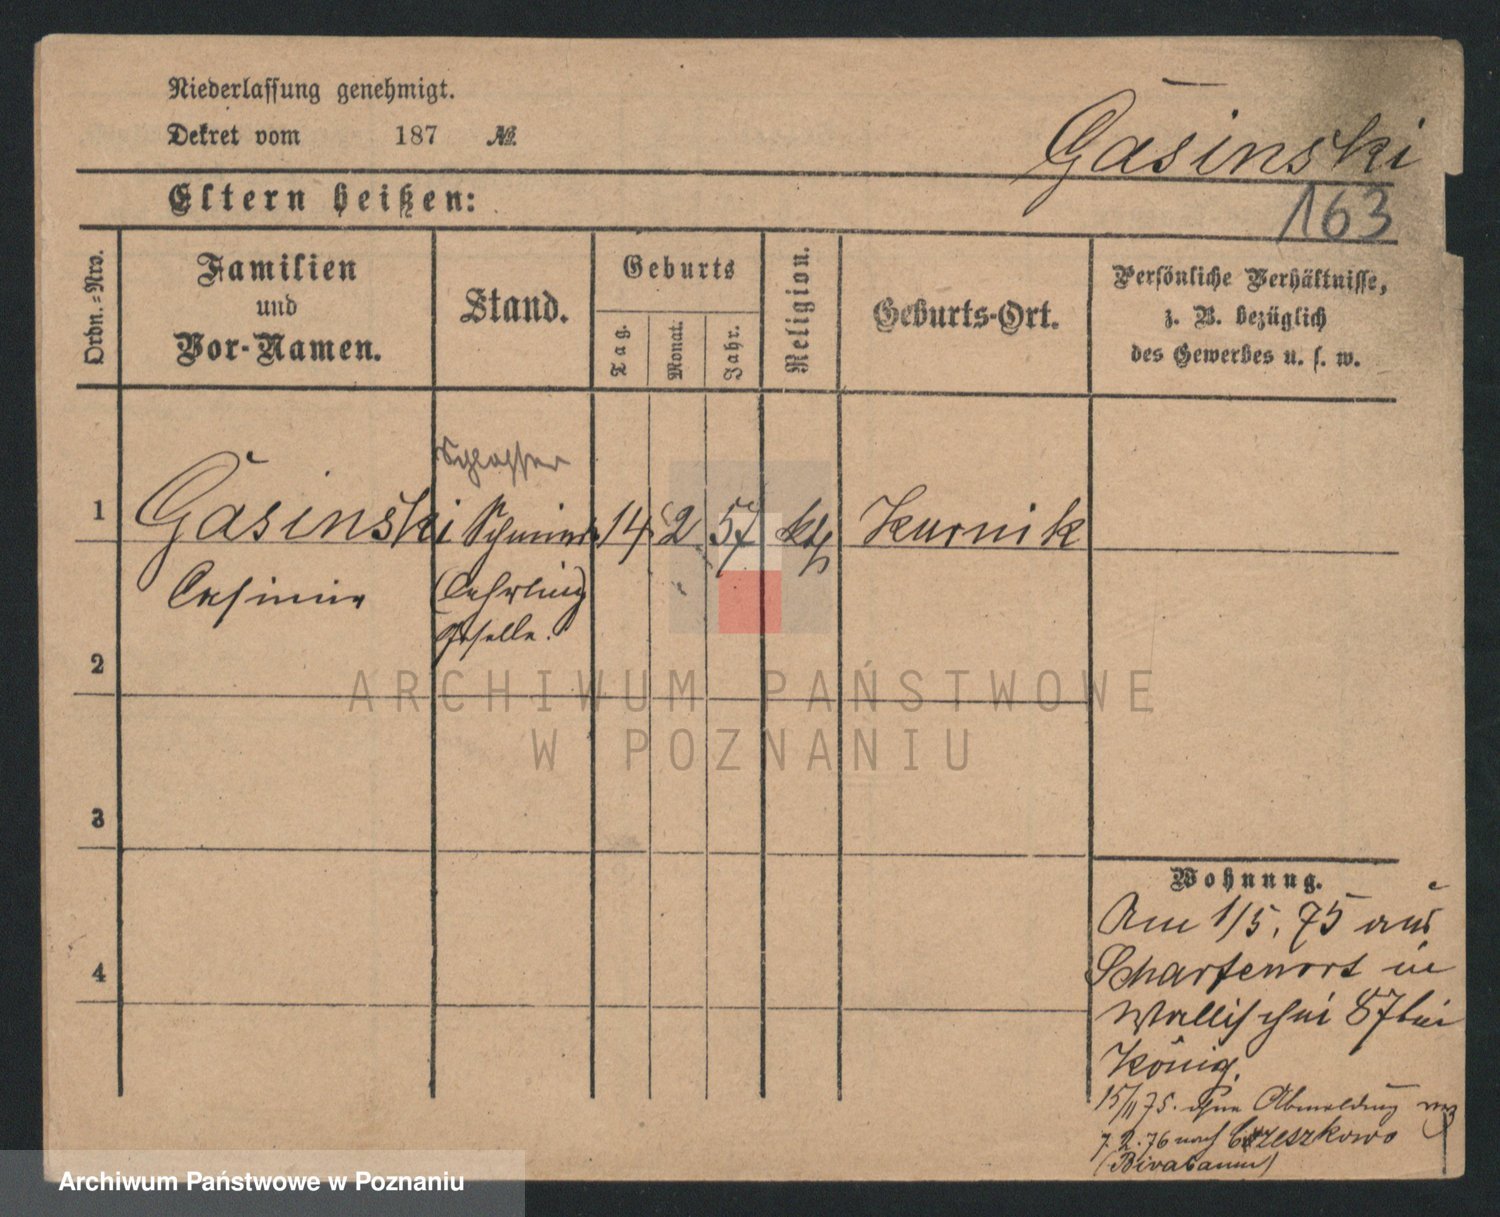 Niederlassung genehmigt.
Dekret vom 187 №
Gąsinski
Eltern heißen:
163
Ordn.-Nro.
Familien
und
Vor-Namen.
Stand.
Geburts
Tag.
Monat.
Jahr.
Religion.
Geburts-Ort.
Persönliche Verhältnisse,
z. B. bezüglich
des Gewerbes u. s. w.
Schlosser
1 Gasinski 14 2 57 kth Kurnik
Casimir (Lehrling)
Geselle.
2
3
4
Wohnung.
Am 1/5. 75 aus
Scharfenort in
Wallischei 87 bei
König.
15/11 75. ohne Abmeldung
7.2.76 nach
ARCHIWUM PAŃSTWOWE
W POZNANIU
Archiwum Państwowe w Poznaniu